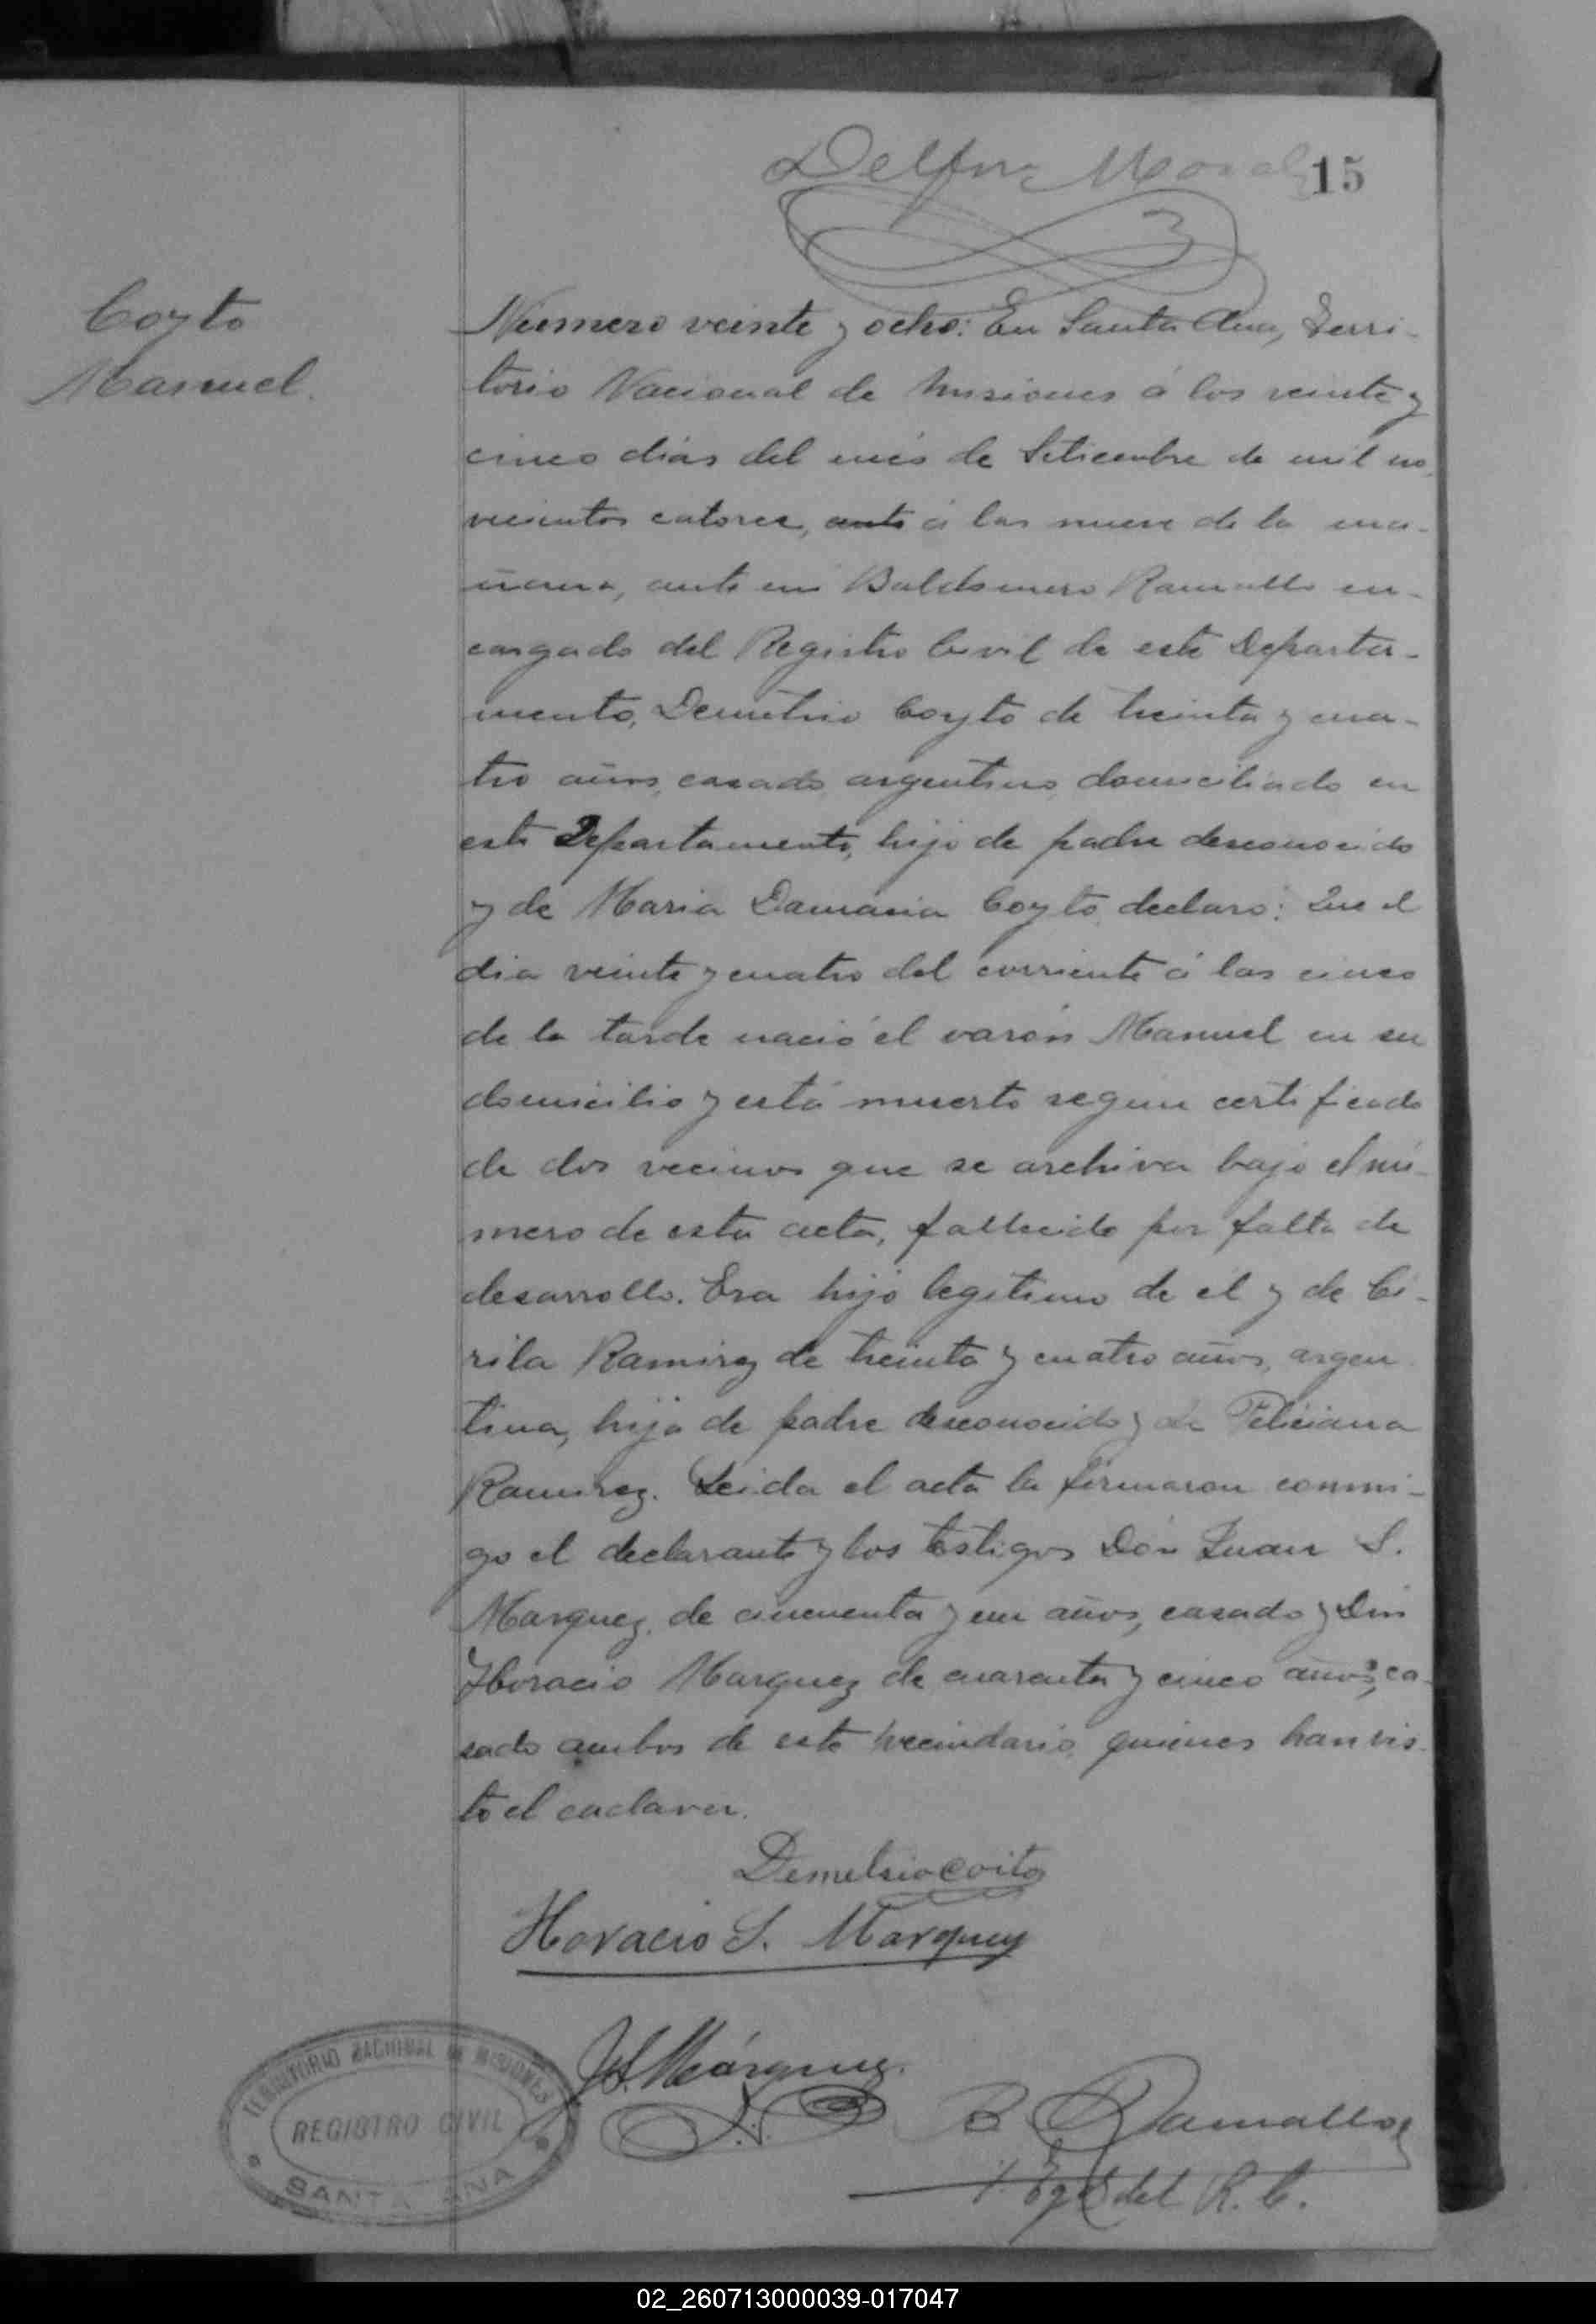 Delfin Moral
15
Coyto
Manuel.
Número veinte y ocho: En Santa Ana, Terri-
torio Nacional de Misiones á los veinte y
cinco dias del mes de Setiembre de mil no
vecientos catorce, ante á las nueve de la ma-
ñana, ante mi Baldomero Ramallo en-
cargado del Registro Civil de este Departa-
mento, Demetrio Coyto de treinta y cua-
tro años, casado, argentino, domiciliado en
este Departamento, hijo de padre desconocido
y de Maria Damasia Coyto, declaró: Que el
dia veinte y cuatro del corriente á las cinco
de la tarde nació el varón Manuel en su
domicilio y está muerto segun certificado
de dos vecinos que se archiva bajo el nú-
mero de esta acta, fallecido por falta de
desarrollo. Era hijo legitimo de él y de Ci-
rila Ramirez de treinta y cuatro años, argen
tina, hija de padre desconocido y de Feliciana
Ramirez. Leida el acta la firmaron conmi-
go el declarante y los testigos Don Juan S.
Marquez, de cincuenta y un años, casado y Don
Horacio Marquez de cuarenta y cinco años, ca-
sado ambos de este vecindario, quienes han vis-
to el cadaver.
Demetrio Coito
Horacio S. Marquez
J. S. Márquez.
B Ramallo
Egdo del R. C.
TERRITORIO NACIONAL DE MISIONES
REGISTRO CIVIL
SANTA ANA
02_260713000039-017047